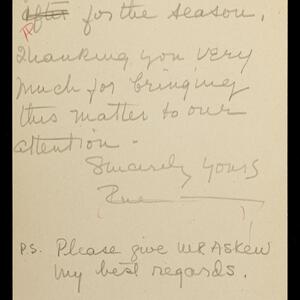 for the season.
Thanking you very
much for bringing
this matter to our
attention.
Sincerely yours
P.S. Please give Mr Askew
my best regards.